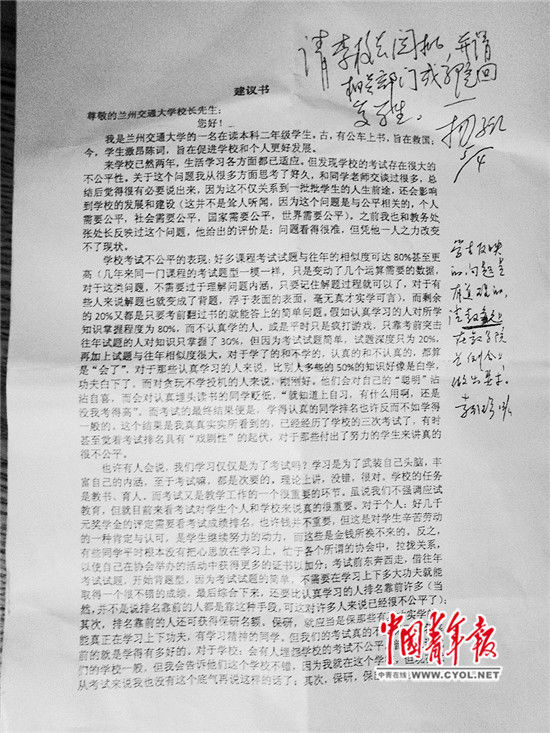 建议书
尊敬的兰州交通大学校长先生：
您好！
我是兰州交通大学的一名在读本科二年级学生。古，有公车上书，旨在救国；
今，学生激昂陈词，旨在促进学校和个人更好发展。
来学校已然两年，生活学习各方面都已适应。但发现学校的考试存在很大的
不公平性。关于这个问题我从很多方面思考了好久，和同学老师交谈过很多，总
结后觉得很有必要说出来，因为这不仅关系到一批批学生的人生前途，还会影响
到学校的发展和建设（这并不是耸人听闻，因为这个问题是与公平相关的，个人
需要公平，社会需要公平，国家需要公平，世界需要公平）。之前我也和教务处
张处长反映过这个问题，他给出的评价是：问题看得很准，但凭他一人之力改变
不了现状。
学校考试不公平的表现：好多课程考试试题与往年的相似度可达 80%甚至更
高（几年来同一门课程的考试题型一模一样，只是变动了几个运算需要的数据，
对于这类问题，不需要过于理解问题内涵，只要记住解题过程就可以了，对于有
些人来说解题也就变成了背题，浮于表面的表面，毫无真才实学可言），而剩余
的 20%又都是只要考前翻过书的就能答上的简单问题，假如认真学习的人对所学
知识掌握程度为 80%，而不认真学的人，或是平时只是疯打游戏，只靠考前突击
往年试题的人对知识只掌握了 30%，但因为考试试题简单，试题深度只为 20%，
再加上试题与往年相似度很大。对于学了的和不学的，认真的和不认真的，都算
是“会了”，对于那些认真学习的人来说，比别人多些的 50%的知识好像是白学，
功夫白下了，而对贪玩不学投机的人来说，刚刚好。他们会对自己的“聪明”沾
沾自喜，而会对认真埋头读书的同学贬低，“就知道上自习，有什么用啊，还是
没我考得高”。而考试的最终结果便是，学得认真的同学排名也许反而不如学得
一般的。这个结果是我真真实实所看到的，已经经历了学校的三次考试了，有时
甚至觉着考试排名具有“戏剧性”的起伏，对于那些付出了努力的学生来讲真的
很不公平。
也许有人会说，我们学习仅仅是为了考试吗？学习是为了武装自己头脑，丰
富自己的内涵，至于考试嘛，都是次要的。理论上讲，没错，很对。学校的任务
是教书、育人。而考试又是教学工作的一个很重要的环节。虽说我们不强调应试
教育，但就目前来看考试对学生个人和学校来说真的很重要。对于个人：好几千
元奖学金的评定需要看考试成绩排名，也许钱并不重要，但这是对学生辛苦劳动
的一种肯定与认可，是学生继续努力的动力，而这些是金钱所换不来的。反之，
有些同学平时根本没有把心思放在学习上，忙于各个所谓的协会中，拉拢关系，
以使自己在协会举办的活动中获得更多的证书以加分；考试前东奔西走，借往年
考试试题，开始背题型，因为考试试题的简单，不需要在学习上下多大功夫就能
取得一个很不错的成绩，最后综合下来，还要比认真学习的人排名靠前许多（当
然，并不是说排名靠前的人都是靠这种手段，可这对许多人来说已经很不公平了）；
其次，排名靠前的人还可获得保研名额。保研，就应当是保那些有
能真正在学习上下功夫，有学习精神的同学。但我们的考试真的不
前的就是学得有多好的。对于学校：会有人埋怨学校的考试不公平
们的学校一般，但我会告诉他们这个学校不错，因为我就在这个学
从考试来说我也没有这个底气再说这样的话了；其次，保研，保
请李校长阅批，并请
相关部门或
发学生。
5/4
学生反映
的问题是
有道理的，
请教务处
在教学院
长例会上
做出要求。
中国青年报
中青在线 WWW.CYOL.NET